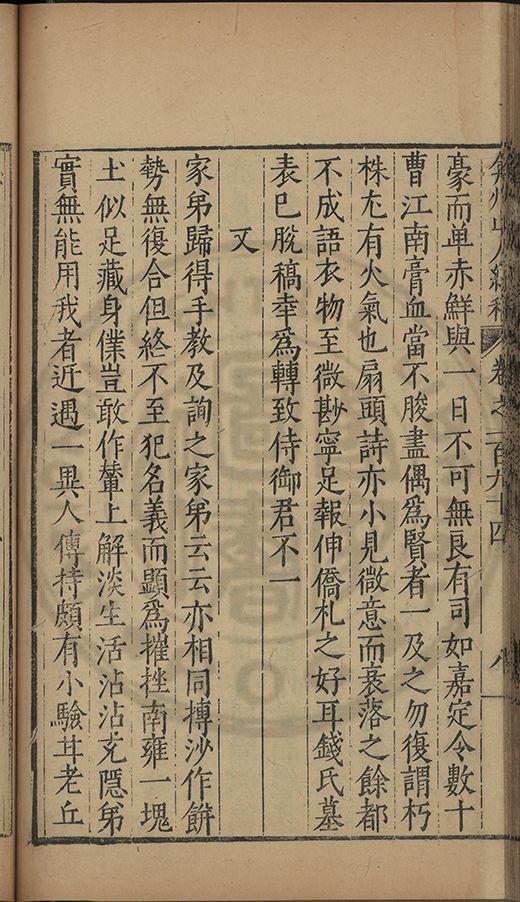 弇州山人續稿 卷之一百九十四 八
豪而单赤鮮與一日不可無良有司如嘉定令數十
曹江南膏血當不朘盡偶爲賢者一及之勿復謂朽
株尢有火氣也扇頭詩亦小見微意而衰落之餘都
不成語衣物至微尠寧足報伸僑札之好耳錢氏墓
表已脫稿幸爲轉致侍御君不一
又
家弟歸得手教及詢之家弟云云亦相同摶沙作餅
勢無復合但終不至犯名義而顯爲摧挫南雍一塊
土似足藏身僕豈敢作輦上解淡生活沾沾充隱弟
實無能用我者近遇一異人傳持頗有小驗茸老丘